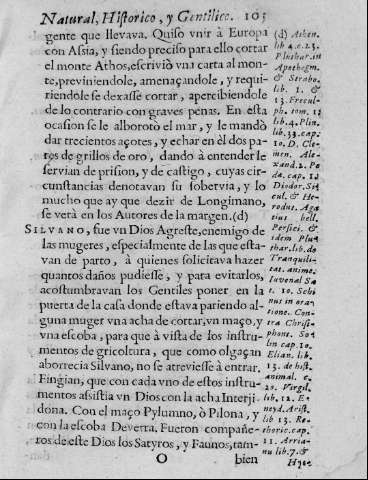 Natural, Historico, y Gentilico. 103
gente que llevava. Quiso vnir à Europa
con Assia, y siendo preciso para ello cortar
el monte Athos, escriviò vna carta al mon-
te, previniendole, amenaçandole, y requi-
riendole se dexasse cortar, apercibiendole
de lo contrario con graves penas. En esta
ocasion se le alborotò el mar, y le mandò
dar trecientos açotes, y echar en èl dos pa-
res de grillos de oro, dando à entender le
servian de prision, y de castigo, cuyas cir-
cunstancias denotavan su sobervia, y lo
mucho que ay que dezir de Longimano,
se verà en los Autores de la margen. (d)
SILVANO, fue vn Dios Agreste, enemigo de
las mugeres, especialmente de las que esta-
van de parto, à quienes solicitava hazer
quantos daños pudiesse, y para evitarlos,
acostumbravan los Gentiles poner en la
puerta de la casa donde estava pariendo al-
guna muger vna acha de cortar, vn maço, y
vna escoba, para que à vista de los instru-
mentos de gricoltura, que como olgaçan
aborrecia Silvano, no se atreviesse à entrar.
Fingian, que con cada vno de estos instru-
mentos assistia vn Dios con la acha Interji-
dona. Con el maço Pylumno, ò Pilona, y
con la escoba Deverra. Fueron compañe-
ros de este Dios los Satyros, y Faunos, tam-
O bien
(d) Athen.
lib 4. c. 13.
Pluthar. in
Apothegm.
& Strabo.
lib. 1. &
13. Freculph.
tom. 12
lib. 4. Plin.
lib. 33. cap.
10. D. Cle-
men. Ale-
xand. 2. Pe
da. cap. 12
Diodor. Si
cul. & He-
rodus. Aga
tius bell.
Persici. &
idem Plu-
thar. lib. de
Tranquili-
tat. anime.
Iuvenal Sa
t. 10. Sabi
nus in ora-
tione. Con-
tra Chrisi-
phone. So-
lin cap. 10.
Elian. lib.
13. de hist.
animal. c.
20. Virgil.
lib. 12. E-
neyd. Arist.
lib 13. Re-
thoric. cap.
11. Arria-
nu lib. 7. &